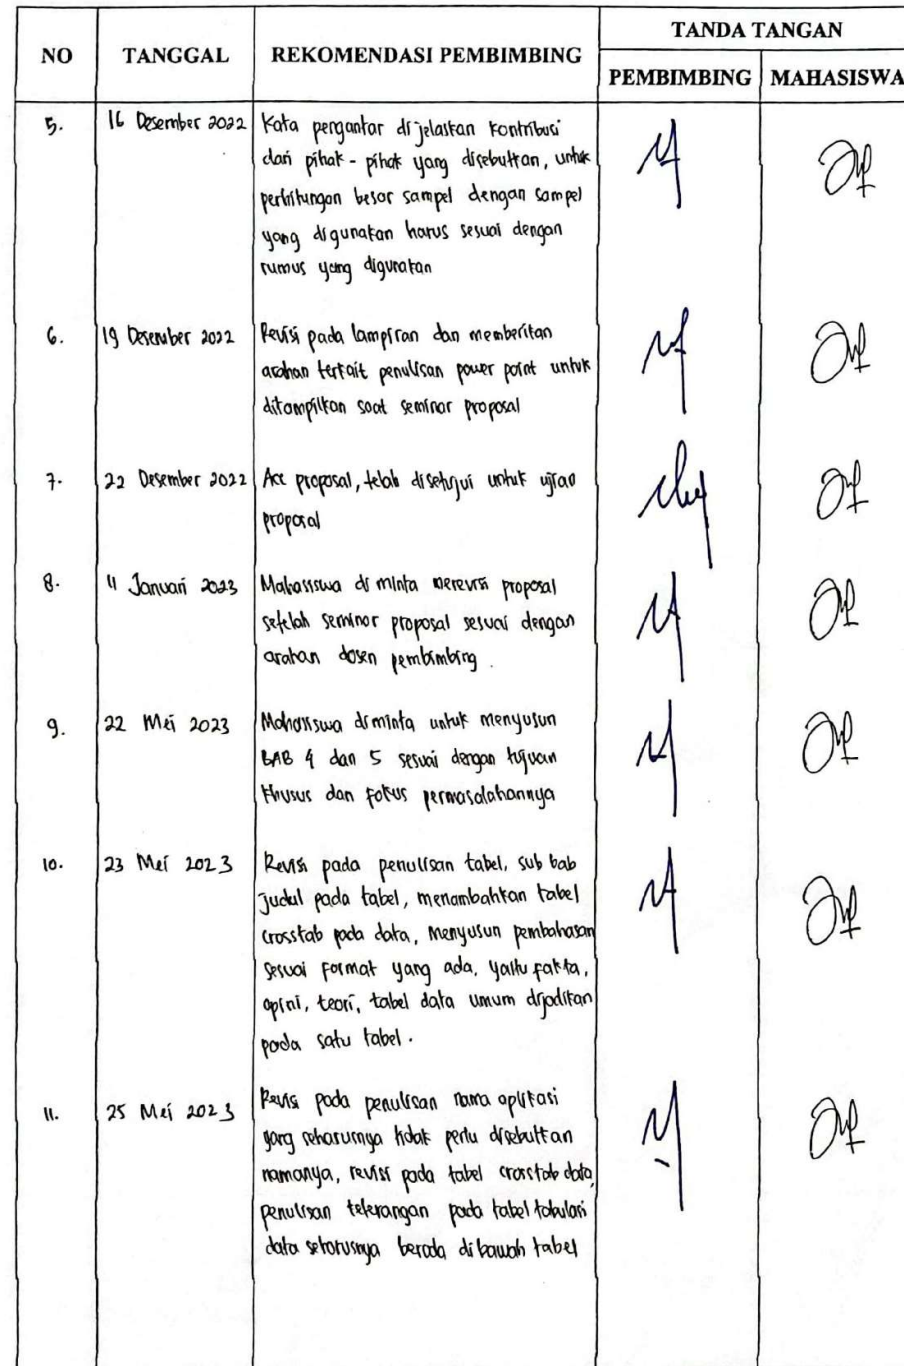 NO TANGGAL REKOMENDASI PEMBIMBING TANDA TANGAN
PEMBIMBING MAHASISWA
5. 16 Desember 2022 Kata pengantar dijelaskan kontribusi
dari pihak - pihak yang disebutkan, untuk
perhitungan besar sampel dengan sampel
yang digunakan harus sesuai dengan
rumus yang digunakan
6. 19 Desember 2022 Revisi pada lampiran dan memberikan
arahan terkait penulisan power point untuk
ditampilkan saat seminar proposal
7. 22 Desember 2022 Acc proposal, telah disetujui untuk ujian
proposal
8. 11 Januari 2023 Mahasiswa di minta merevisi proposal
setelah seminar proposal sesuai dengan
arahan dosen pembimbing .
9. 22 Mei 2023 Mahasiswa diminta untuk menyusun
BAB 4 dan 5 sesuai dengan tujuan
khusus dan fokus permasalahannya
10. 23 Mei 2023 Revisi pada penulisan tabel, sub bab
judul pada tabel, menambahkan tabel
crosstab pada data, menyusun pembahasan
sesuai format yang ada, yaitu fakta,
opini, teori, tabel data umum dijadikan
pada satu tabel .
11. 25 Mei 2023 Revisi pada penulisan nama aplikasi
yang seharusnya tidak perlu disebutkan
namanya, revisi pada tabel crosstab data,
penulisan keterangan pada tabel tabulasi
data seharusnya berada di bawah tabel